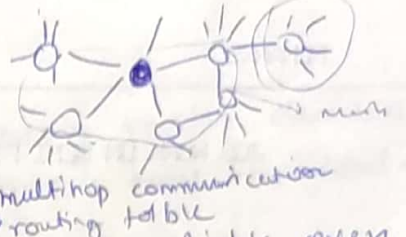 mesh
multihop communication
routing table